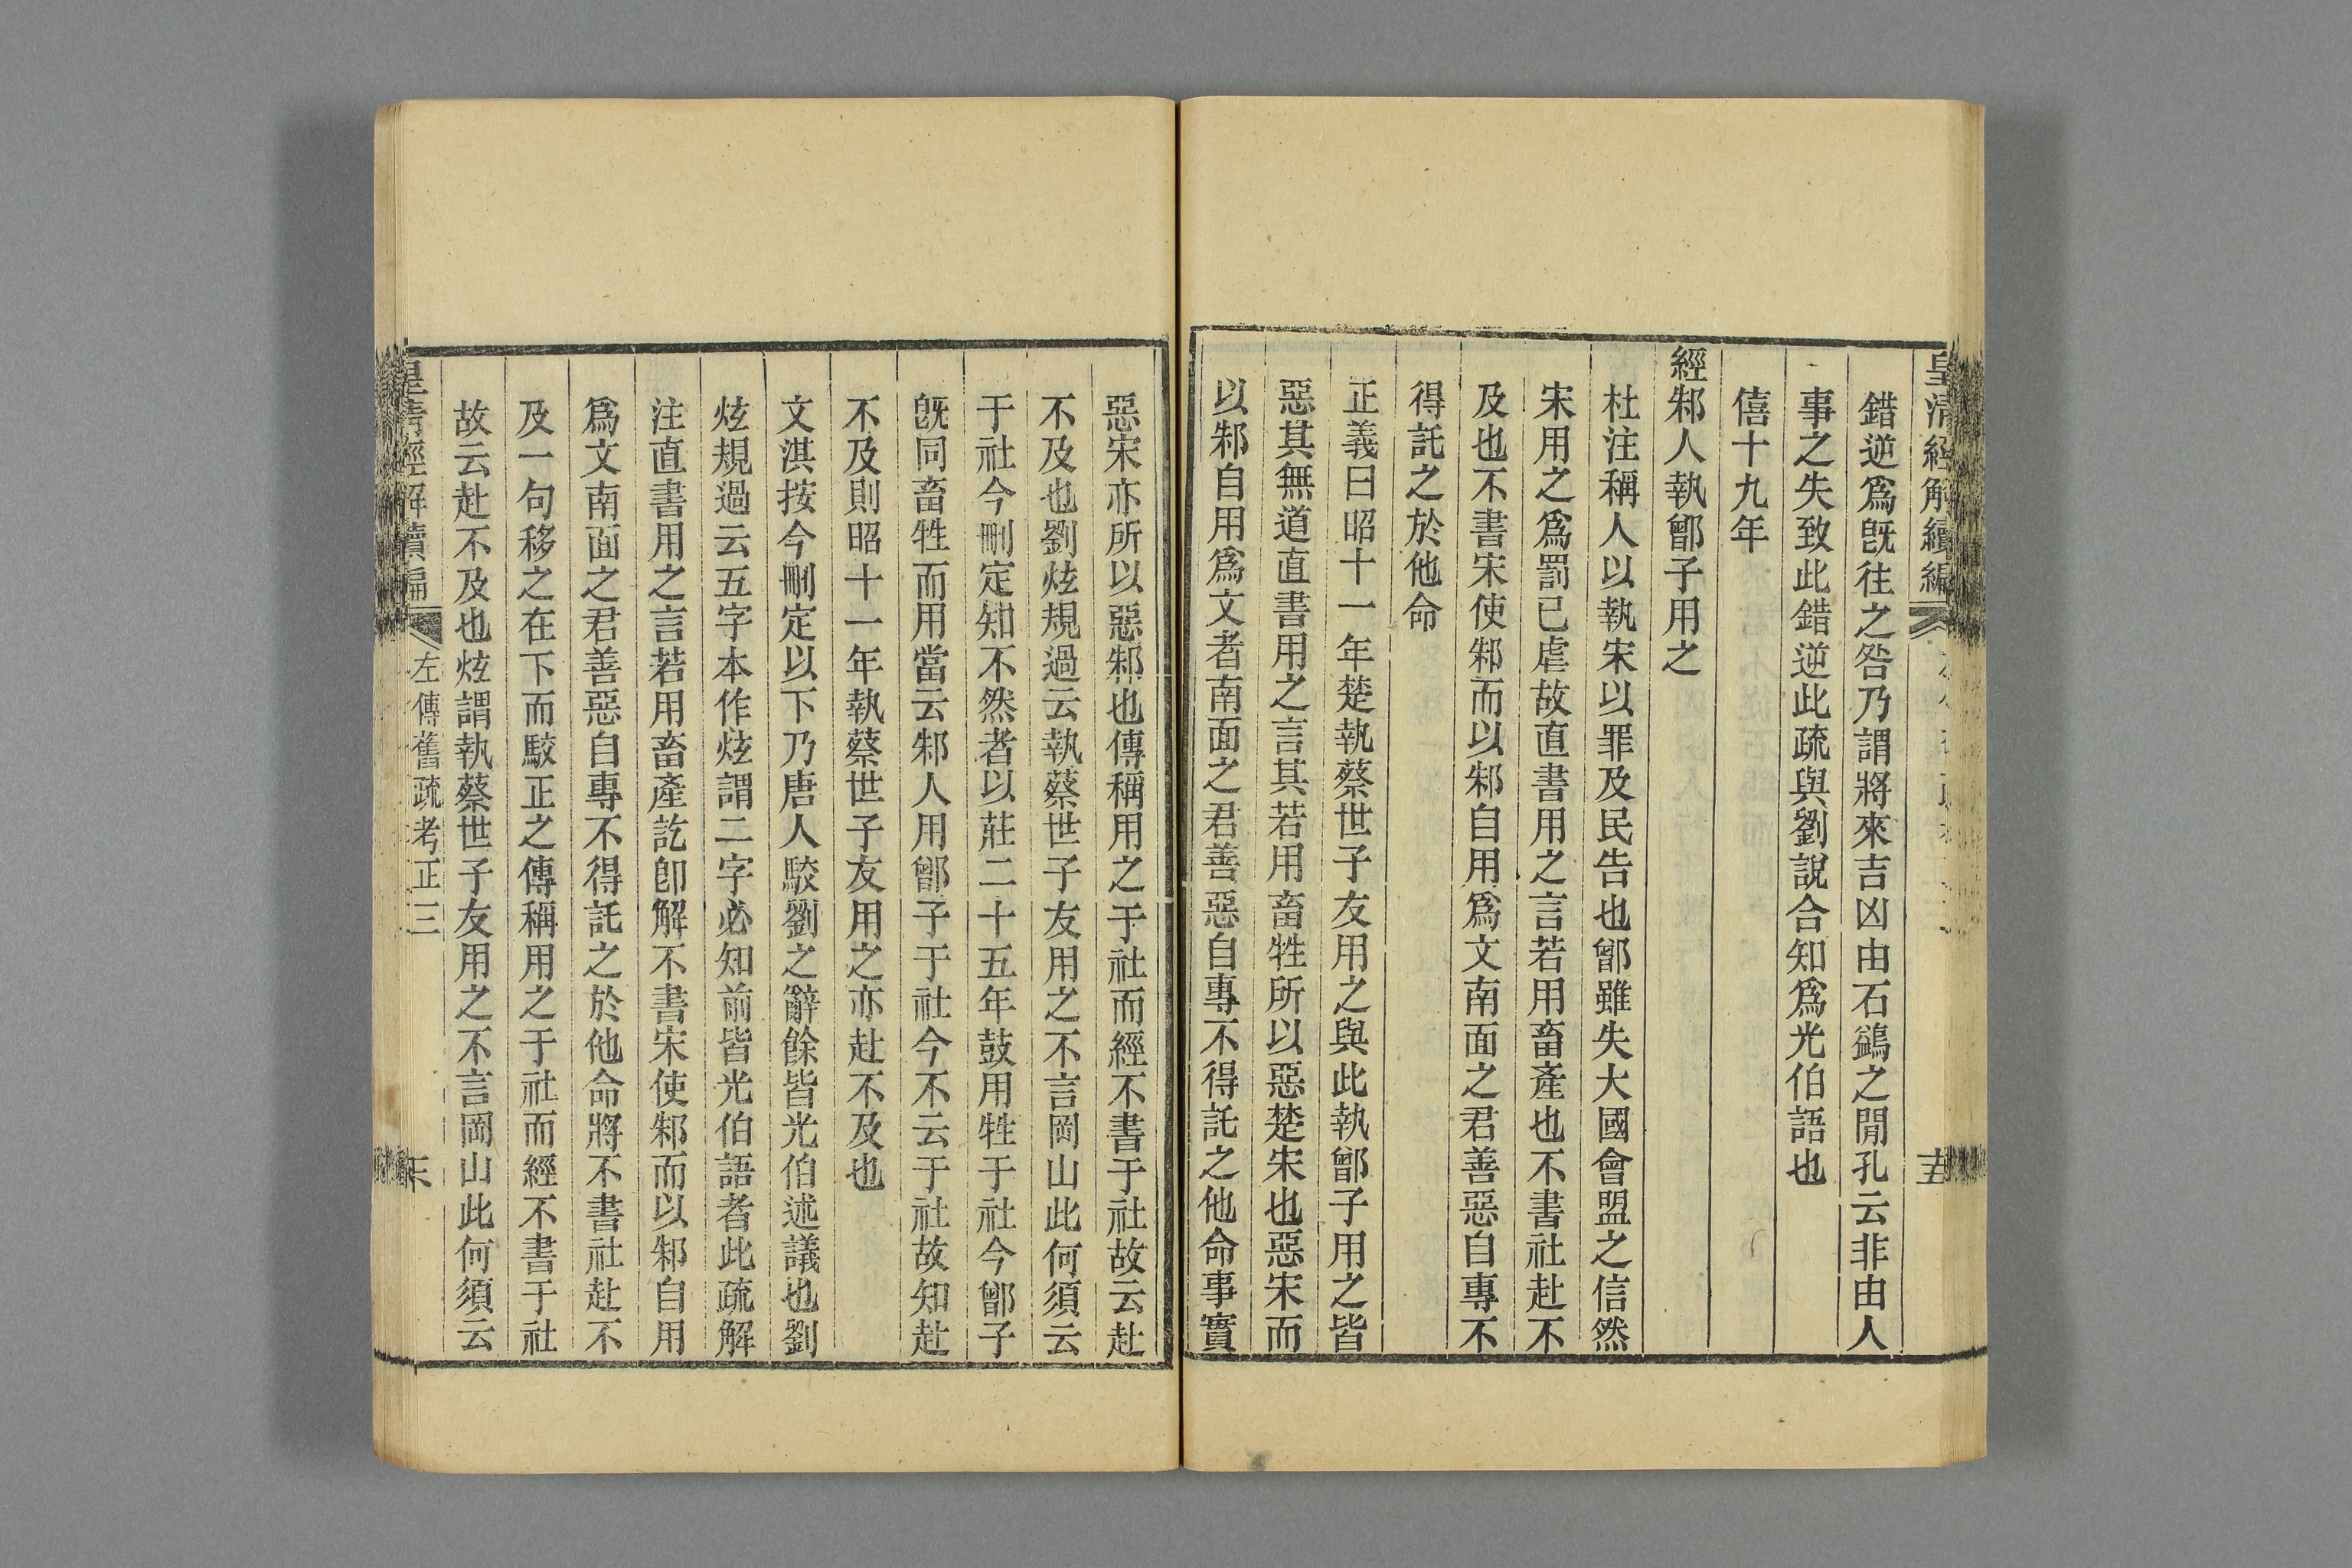 皇清經解續編
錯逆爲旣往之咎乃謂將來吉凶由石鷁之閒孔云非由人
事之失致此錯逆此疏與劉說合知爲光伯語也
僖十九年
經邾人執鄫子用之
杜注稱人以執宋以罪及民告也鄫雖失大國會盟之信然
宋用之爲罰已虐故直書用之言若用畜產也不書社赴不
及也不書宋使邾而以邾自用爲文南面之君善惡自專不
得託之於他命
正義曰昭十一年楚執蔡世子友用之與此執鄫子用之皆
惡其無道直書用之言其若用畜牲所以惡楚宋也惡宋而
以邾自用爲文者南面之君善惡自專不得託之他命事實
惡宋亦所以惡邾也傳稱用之于社而經不書于社故云赴
不及也劉炫規過云執蔡世子友用之不言岡山此何須云
于社今刪定知不然者以莊二十五年鼓用牲于社今鄫子
旣同畜牲而用當云邾人用鄫子于社今不云于社故知赴
不及則昭十一年執蔡世子友用之亦赴不及也
文淇按今刪定以下乃唐人駁劉之辭餘皆光伯述議也劉
炫規過云五字本作炫謂二字必知前皆光伯語者此疏解
注直書用之言若用畜產訖卽解不書宋使邾而以邾自用
爲文南面之君善惡自專不得託之於他命將不書社赴不
及一句移之在下而駁正之傳稱用之于社而經不書于社
故云赴不及也炫謂執蔡世子友用之不言岡山此何須云
皇清經解續編 左傳舊疏考正三